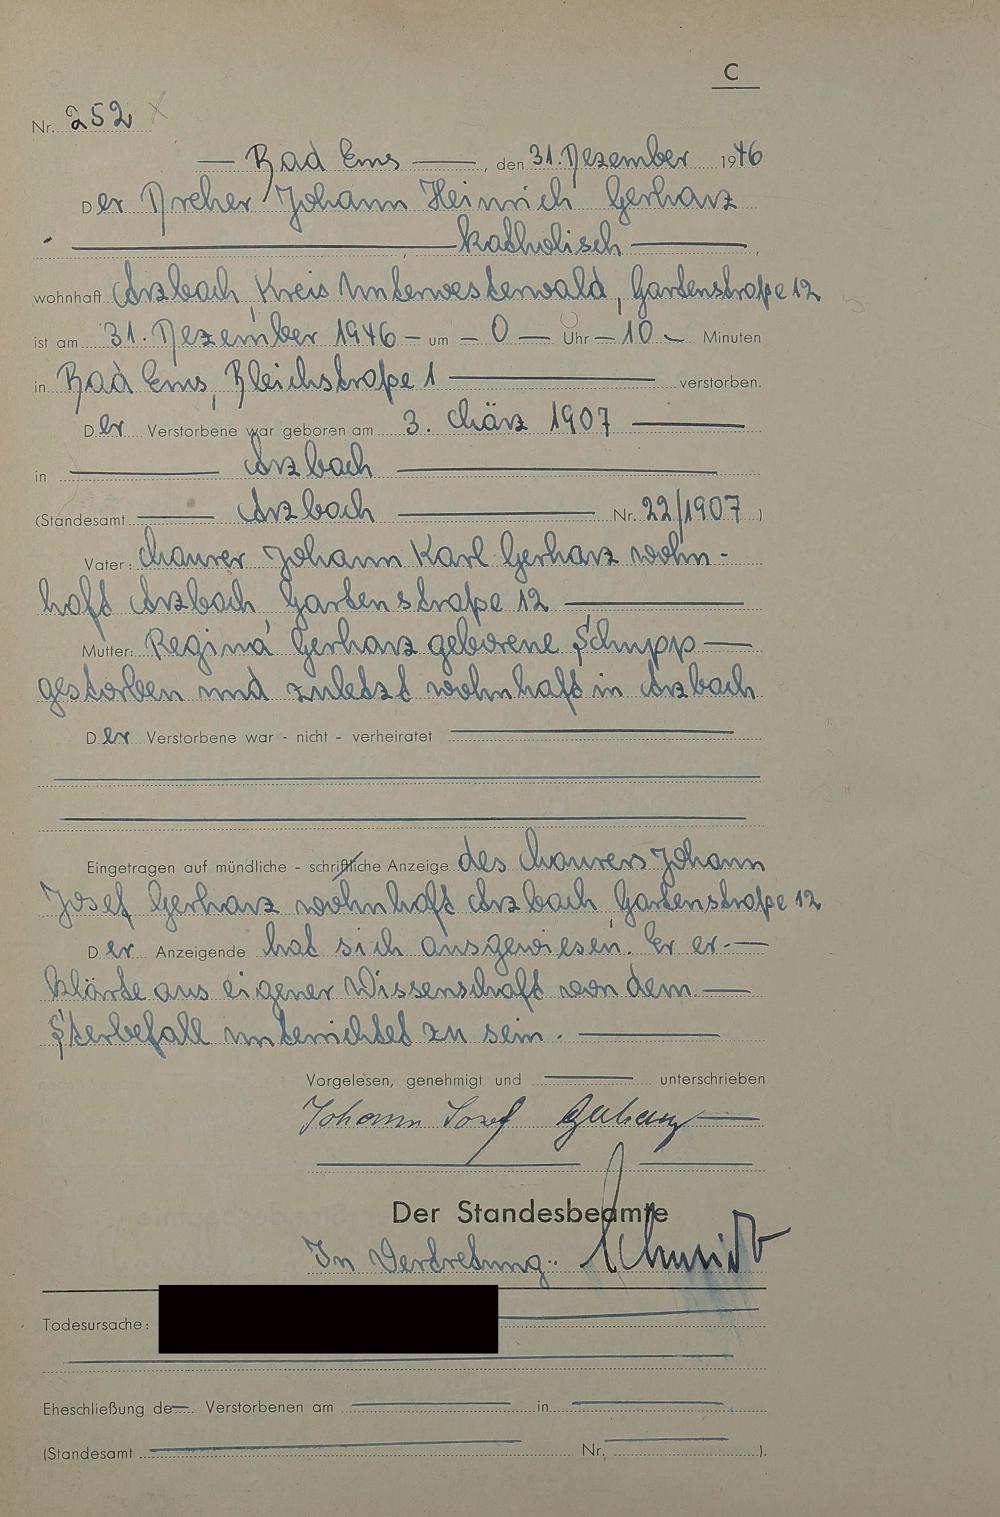 C
Nr. 252
Bad Ems, den 31. Dezember 1946
Der Dreher Johann Heinrich Gerharz
katholisch,
wohnhaft Arzbach, Kreis Unterwesterwald, Gartenstraße 12
ist am 31. Dezember 1946 um 0 Uhr 10 Minuten
in Bad Ems, Bleichstraße 1 verstorben.
Der Verstorbene war geboren am 3. März 1907
in Arzbach
(Standesamt Arzbach Nr. 22/1907)
Vater: Maurer Johann Karl Gerharz wohn-
haft Arzbach, Gartenstraße 12
Mutter: Regina Gerharz geborene Schupp
gestorben und zuletzt wohnhaft in Arzbach
Der Verstorbene war - nicht - verheiratet
Eingetragen auf mündliche - schriftliche Anzeige des Maurers Johann
Josef Gerharz wohnhaft Arzbach, Gartenstraße 12
Der Anzeigende hat sich ausgewiesen. Er er-
klärte aus eigener Wissenschaft von dem
Sterbefall unterrichtet zu sein.
Vorgelesen, genehmigt und unterschrieben
Johann Josef Gerharz
Der Standesbeamte
In Vertretung: Schmidt
Todesursache:
Eheschließung de Verstorbenen am in
(Standesamt Nr. ).